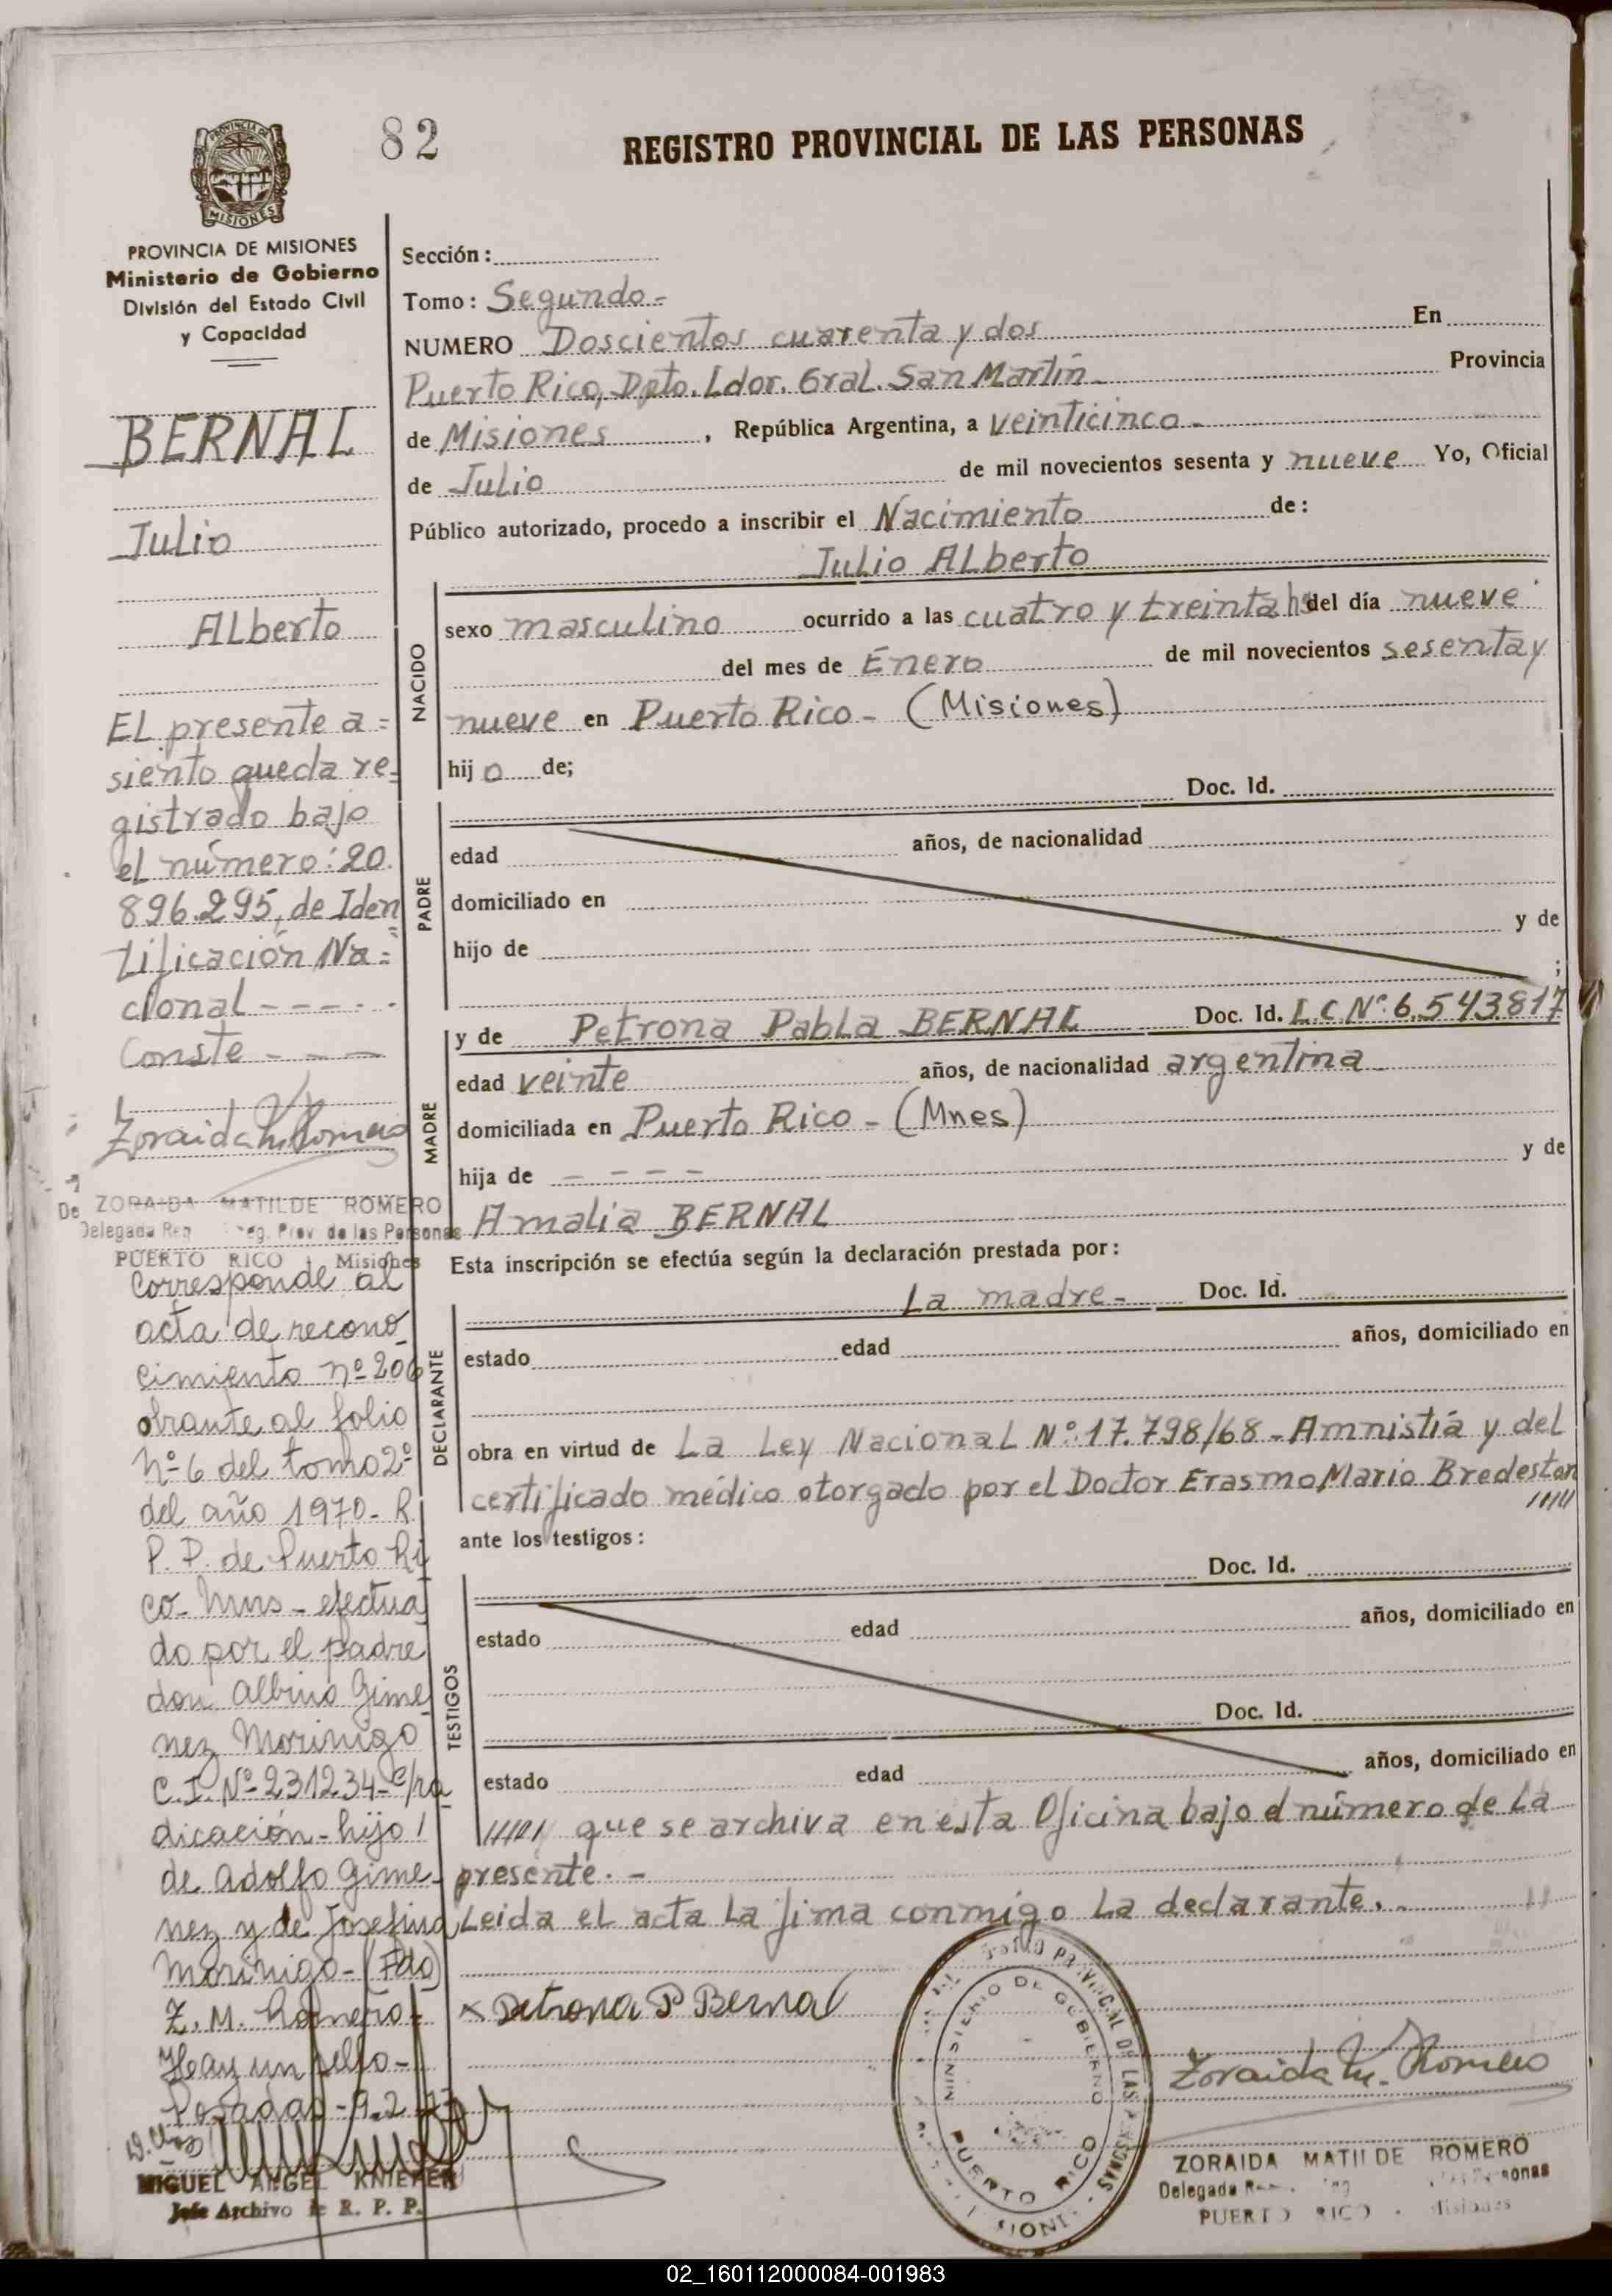 82
REGISTRO PROVINCIAL DE LAS PERSONAS
PROVINCIA DE MISIONES
MISIONES
PROVINCIA DE MISIONES
Ministerio de Gobierno
División del Estado Civil
y Capacidad
BERNAL
Julio
Alberto
El presente a=
siento queda re=
gistrado bajo
el número: 20.
896.295, de Iden
tificación Na=
cional - - - - -
Conste - - -
Zoraida M. Romero
ZORAIDA MATILDE ROMERO
Delegada Reg. Prov. de las Personas
PUERTO RICO Misiones
Corresponde al
acta de recono
cimiento nº 206
obrante al folio
nº 6 del tomo 2º
del año 1970 - R.
P. P. de Puerto Ri
co - Mns - efectua
do por el padre
don Albino Gime
nez Morinigo
C.I. Nº 231234 - c/ra
dicación - hijo
de Adolfo Gime-
nez y de Josefina
Morinigo - (Fdo)
Z. M. Romero -
Hay un sello -
Posadas - 9.2
MIGUEL ANGEL KNIEPER
Jefe Archivo de R. P. P.
Sección:
Tomo: Segundo -
NUMERO Doscientos cuarenta y dos En
Puerto Rico, Dpto. Ldor. Gral. San Martín - Provincia
de Misiones, República Argentina, a veinticinco -
de Julio de mil novecientos sesenta y nueve Yo, Oficial
Público autorizado, procedo a inscribir el Nacimiento de:
Julio Alberto
NACIDO
sexo masculino ocurrido a las cuatro y treinta hs del día nueve
del mes de Enero de mil novecientos sesenta y
nueve en Puerto Rico - (Misiones)
hijo de;
PADRE
Doc. Id.
edad años, de nacionalidad
domiciliado en
hijo de y de
;
MADRE
y de Petrona Pabla BERNAL Doc. Id. L.C. Nº: 6.543817
edad veinte años, de nacionalidad argentina
domiciliada en Puerto Rico - (Mnes)
hija de - - - - y de
Amalia BERNAL
Esta inscripción se efectúa según la declaración prestada por:
DECLARANTE
La madre - Doc. Id.
estado edad años, domiciliado en
obra en virtud de La Ley Nacional Nº: 17.798/68 - Amnistía y del
certificado médico otorgado por el Doctor Erasmo Mario Bredeston
/////
ante los testigos:
TESTIGOS
Doc. Id.
estado edad años, domiciliado en
Doc. Id.
estado edad años, domiciliado en
///// que se archiva en esta Oficina bajo el número de la
presente. -
Leida el acta la firma conmigo la declarante. -
x Petrona P Bernal
MINISTERIO DE GOBIERNO
PUERTO RICO
Zoraida M. Romero
ZORAIDA MATILDE ROMERO
Delegada
PUERTO RICO - Misiones
02_160112000084-001983